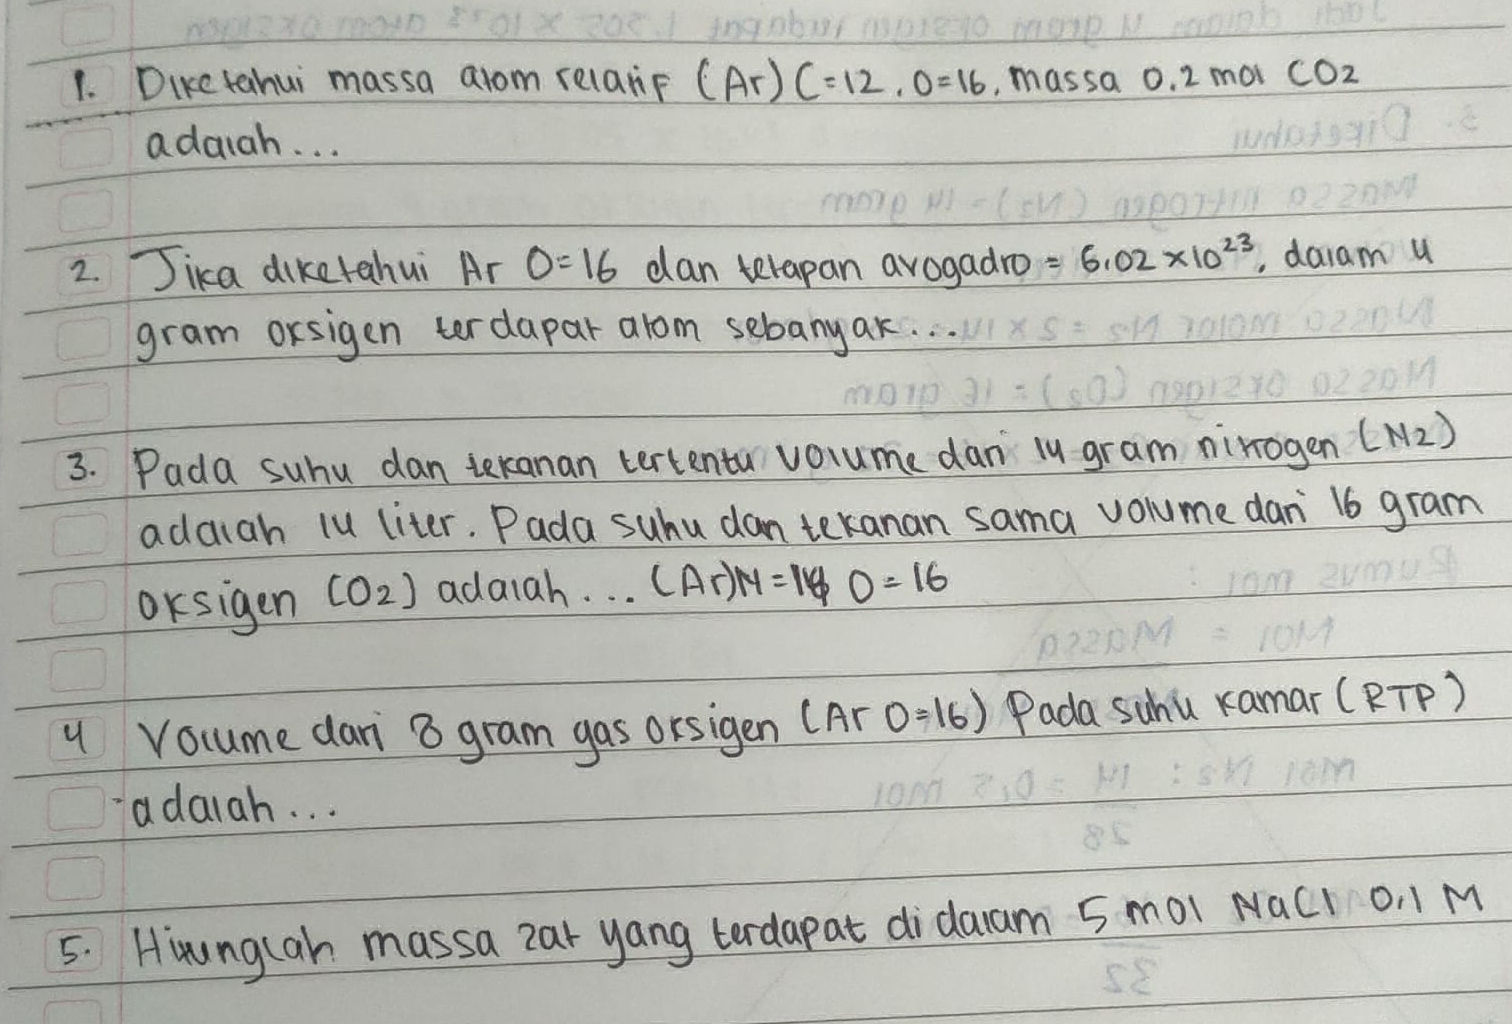 1. Diketahui massa atom relatif (Ar) C=12, O=16, massa 0.2 mol CO2
adalah...
2. Jika diketahui Ar O=16 dan tetapan avogadro = 6.02 x 10²³, dalam 4
gram oksigen terdapat atom sebanyak...
3. Pada suhu dan tekanan tertentu volume dari 14 gram nitrogen (N2)
adalah 14 liter. Pada suhu dan tekanan sama volume dari 16 gram
oksigen (O2) adalah... (Ar)N=14 O=16
4 Volume dari 8 gram gas oksigen (Ar O=16) Pada suhu kamar (RTP)
adalah...
5. Hitunglah massa zat yang terdapat di dalam 5 mol NaCl 0,1 M